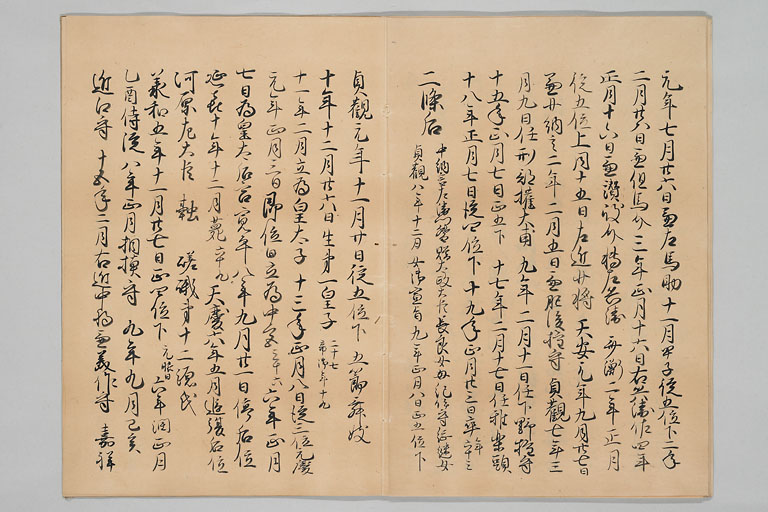 元年七月廿六日兼左馬助十一月甲子従五位下二年
二月廿八日兼但馬介三年正月十六日右兵衛佐四年
正月十六日兼讃岐介転左兵衛 貞観二年正月
従五位上同十五日左近少将 天安元年九月廿七日
兼少納言二年二月五日兼肥後権守貞観七年三
月九日任刑部権大甫 九年二月十一日任下野権守
十五年正月七日正五下 十七年二月十七日任雅楽頭
十八年正月七日従四位下 十九年正月廿三日卒年
二条后 中納言左衛門督贈太政大臣長良女母紀伊守総継女
貞観八年十二月女御宣旨九年正月八日正五位下
貞観元年十一月廿日従五位下 五節舞妓
十年十二月廿六日生第一皇子 二十七 帝御年十九
十一年二月立為皇太子 十三年正月八日従三位元慶
元年正月三日即位日立為中宮三十六 六年正月
七日為皇太后宮寛平八年九月廿一日停后位
延喜十年十二月薨六十九 天慶六年五月追復后位
河原左大臣 融 嵯峨第十二源氏
承和五年十一月廿七日正四位下元服日 六年潤正月
乙酉侍従八年正月相模守 九年九月己亥
近江守 十五年二月右近中将兼美作守 嘉祥